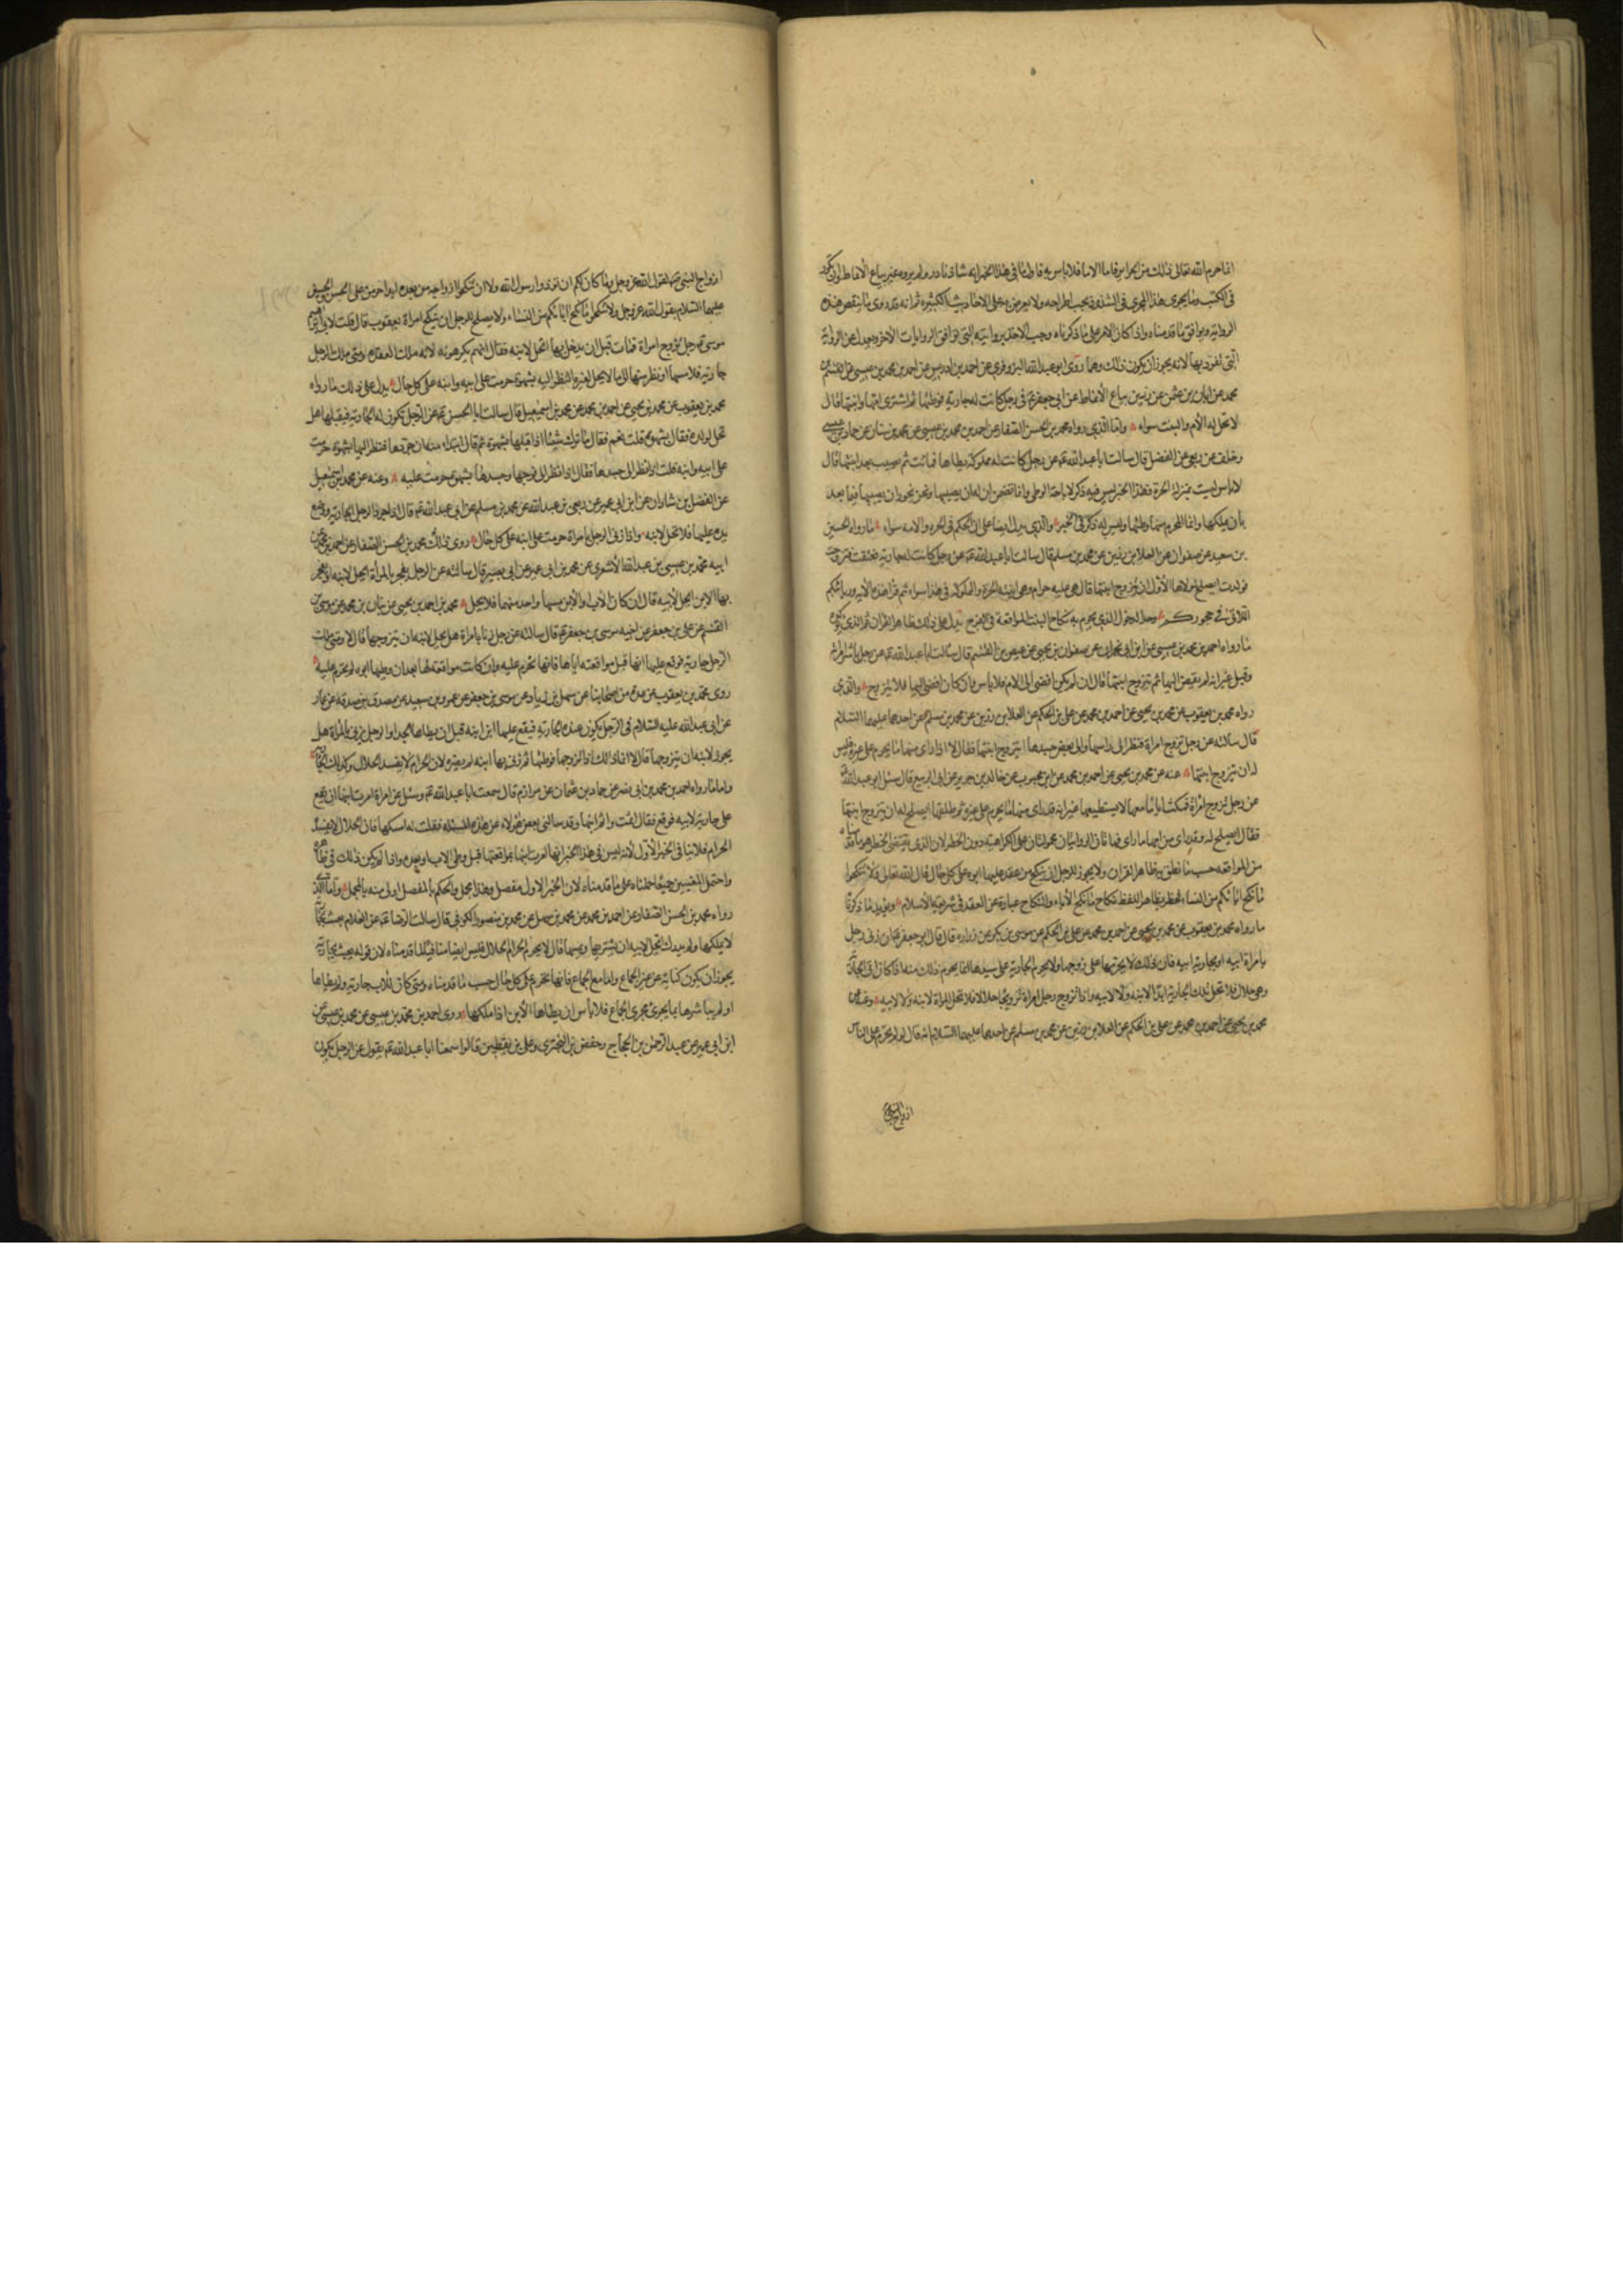 انما حرم الله تعالى ذلك من الحراير فاما الاما فلا باس به فاما ما في هذا الخبر انه شاذ نادر ولم يروه غير بياع الانماط وان تكرر
في الكتب وما يجرى هذا المجرى في الشذوذ يجب اطراحه ولا يعترض به على الاحاديث الكثيرة ثم انه قد روى ما ينقض هذه
الرواية ويوافق ما قدمناه واذا كان الامر على ما ذكرناه وجب الاخذ بروايته التي توافق الروايات الاخر ويعدل عن الرواية
التي تفرد بها لانه يجوز ان يكون ذلك وهما روى ابو عبد الله البزوفري عن احمد بن ادريس عن احمد بن محمد بن عيسى عن القسم بن
محمد عن ابان بن عثمن عن رزين بياع الانماط عن ابي جعفر ع في رجل كانت له جارية فوطئها ثم اشترى امها وابنتها قال
لا تحل له الام والبنت سواء واما الذي رواه محمد بن الحسن الصفار عن احمد بن محمد بن عيسى عن محمد بن سنان عن حماد بن عيسى
وخلف عن ربعي عن الفضل قال سالت ابا عبد الله ع عن رجل كانت له مملوكة يطاها فماتت ثم يصيب بعد ابنتها قال
لا باس ليست بمنزلة الحرة فهذا الخبر ليس فيه ذكر لاباحة الوطى وانما تضمن ان له ان يصيبها ونحن نجوز ان يصيبها فيما بعد
بان يملكها وانما المحرم منها وطئها وليس له ذكر في الخبر والذي يدل ايضا على ان الحكم في الحرة والامة سواء ما رواه الحسين
بن سعيد عن صفوان عن العلا بن رزين عن محمد بن مسلم قال سالت ابا عبد الله ع عن رجل كانت له جارية فعتقت فتزوجت
فولدت ايصلح لمولاها الاول ان يتزوج ابنتها قال هي عليه حرام وهي ابنته الحرة والمملوكة في هذا سواء ثم قرا هذه الاية وربائبكم
اللاتي في حجوركم وحد الدخول الذي يحرم به نكاح البنت المواقعة في الفرج يدل على ذلك ظاهر القران ثم الذي يؤكده
ما رواه احمد بن محمد بن عيسى عن ابن ابي نجران عن صفوان بن يحيى عن عيص بن القسم قال سالت ابا عبد الله ع عن رجل باشر امراة
وقبل غير انه لم يفض اليها ثم تزوج ابنتها قال ان لم يكن افضى الى الام فلا باس وان كان افضى اليها فلا يتزوج والذي
رواه محمد بن يعقوب عن محمد بن يحيى عن احمد بن محمد عن علي بن الحكم عن العلا بن رزين عن محمد بن مسلم عن احدهما عليهما السلام
قال سالته عن رجل تزوج امراة فنظر الى راسها والى بعض جسدها ايتزوج ابنتها فقال لا اذا راى منها ما يحرم على غيره فليس
له ان يتزوج ابنتها عنه عن محمد بن يحيى عن احمد بن محمد عن ابن محبوب عن خالد بن جرير عن ابي الربيع قال سئل ابو عبد الله ع
عن رجل تزوج امراة فمكث اياما معها لا يستطيعها غير انه قد راى منها ما يحرم على غيره ثم طلقها ايصلح له ان يتزوج ابنتها
فقال ايصلح له وقد راى من امها ما راى فهاتان الروايتان محمولتان على الكراهية دون الحظر لان الذي يقتضى الحظر هو ما قدمناه
من المواقعة حسب ما نطق به ظاهر القران ولا يجوز للرجل ان ينكح من عقد عليها ابوه على كل حال قال الله تعالى فلا تنكحوا
ما نكح اباؤكم من النساء فحظر بظاهر اللفظ نكاح ما نكح الاباء والنكاح عبارة عن العقد في شريعة الاسلام ويؤيد ما ذكرناه
ما رواه محمد بن يعقوب عن محمد بن يحيى عن احمد بن محمد عن علي بن الحكم عن موسى بن بكر عن زرارة قال قال ابو جعفر ع ان زنى رجل
بامراة ابيه او بجارية ابيه فان ذلك لا يحرمها على زوجها ولا يحرم الجارية على سيدها انما يحرم ذلك منه اذا كان اتى الجارية
وهي حلال فلا تحل تلك الجارية ابدا لابنه ولا لابيه واذا تزوج رجل امراة تزويجا حلالا فلا تحل المراة لابنه ولا لابيه وعنه عن
محمد بن يحيى عن احمد بن محمد عن علي بن الحكم عن العلا بن رزين عن محمد بن مسلم عن احدهما عليهما السلام انه قال لو لم يحرم على الناس
ازواج النبي
ازواج النبي ص لقول الله عز وجل وما كان لكم ان تؤذوا رسول الله ولا ان تنكحوا ازواجه من بعده ابدا حرمن على الحسن والحسين
عليهما السلام بقول الله عز وجل ولا تنكحوا ما نكح اباؤكم من النساء ولا يصلح للرجل ان ينكح امراة جده يعقوب قال قلت لابي ابراهيم
موسى ع رجل تزوج امراة فمات قبل ان يدخل بها اتحل لابنه فقال انهم يكرهونه لانه ملك العقدة ومتى ملك الرجل
جارية فلامسها او نظر منها الى ما لا يحل لغيره النظر اليه بشهوة حرمت على ابيه وابنه على كل حال يدل على ذلك ما رواه
محمد بن يعقوب عن محمد بن يحيى عن احمد بن محمد عن محمد بن اسمعيل قال سالت ابا الحسن ع عن الرجل تكون له الجارية فيقبلها هل
تحل لولده فقال بشهوة قلت نعم فقال ما ترك شيئا اذا قبلها بشهوة ثم قال ابتداء منه ان جردها فنظر اليها بشهوة حرمت
على ابيه وابنه قلت اذا نظر الى جسدها فقال اذا نظر الى فرجها وجسدها بشهوة حرمت عليه وعنه عن محمد بن اسمعيل
عن الفضل بن شاذان عن ابن ابي عمير عن ربعي بن عبد الله عن محمد بن مسلم عن ابي عبد الله ع قال اذا جرد الرجل الجارية ووضع
يده عليها فلا تحل لابنه واذا زنى الرجل بامراة حرمت على ابنه على كل حال روى ذلك محمد بن الحسن الصفار عن احمد بن محمد عن
ابيه محمد بن عيسى بن عبد الله الاشعري عن محمد بن ابي عمير عن ابي بصير قال سالته عن الرجل يفجر بالمراة اتحل لابنه او يفجر
بها الابن اتحل لابيه قال ان كان الاب والابن مسها واحد منهما فلا يحل محمد بن احمد بن يحيى عن بنان بن محمد عن موسى بن
القسم عن علي بن جعفر عن اخيه موسى بن جعفر ع قال سالته عن رجل زنا بامراة هل يحل لابنه ان يتزوجها قال لا ومتى ملك
الرجل جارية فوقع عليها ابنها قبل مواقعته اياها فانها تحرم عليه وان كانت مواقعته لها بعد ان وطيها ابوه لم تحرم عليه
روى محمد بن يعقوب عن عدة من اصحابنا عن سهل بن زياد عن موسى بن جعفر عن عمرو بن سعيد عن مصدق بن صدقة عن عمار
عن ابي عبد الله عليه السلام في الرجل يكون عنده الجارية فيقع عليها ابن ابنه قبل ان يطاها الجد او الرجل يزنى بالمراة هل
يجوز لابنه ان يتزوجها قال لا انما ذلك اذا تزوجها فوطئها ثم زنى بها ابنه لم يضره لان الحرام لا يفسد الحلال وكذلك الجارية
واما ما رواه احمد بن محمد بن ابي نصر عن حماد بن عثمان عن مرازم قال سمعت ابا عبد الله ع وسئل عن امراة امرت ابنها ان يقع
على جارية لابيه فوقع فقال اثمت واثم ابنها وقد سالني بعض هؤلاء عن هذه المسئلة فقلت له امسكها فان الحلال لا يفسده
الحرام فلا ينافي الخبر الاول لانه ليس في هذا الخبر انها امرت ابنها بمواقعتها قبل وطي الاب او بعده واذا لم يكن ذلك في ظاهره
واحتمل المعنيين جميعا حملناه على ما قدمناه لان الخبر الاول مفصل وهذا مجمل والحكم بالمفصل اولى منه بالمجمل واما الذي
رواه محمد بن الحسن الصفار عن احمد بن محمد عن محمد بن سهل عن محمد بن منصور الكوفي قال سالت الرضا ع عن الغلام يعبث بجارية
لا يملكها ولم يدرك اتحل لابيه ان يشتريها ويمسها قال لا يحرم الحرام الحلال فليس ايضا منافيا لما قدمناه لان قوله يعبث بجارية
يجوز ان يكون كناية عن غير الجماع واما مع الجماع فانها تحرم على كل حال حسب ما قدمناه ومتى كان للاب جارية ولم يطاها
او لم يباشرها بما يجرى مجرى الجماع فلا باس ان يطاها الابن اذا ملكها روى احمد بن محمد بن عيسى عن محمد بن عيسى عن
ابن ابي عمير عن عبد الرحمن بن الحجاج وحفص بن البخترى وعلي بن يقطين قالوا سمعنا ابا عبد الله ع يقول عن الرجل يكون